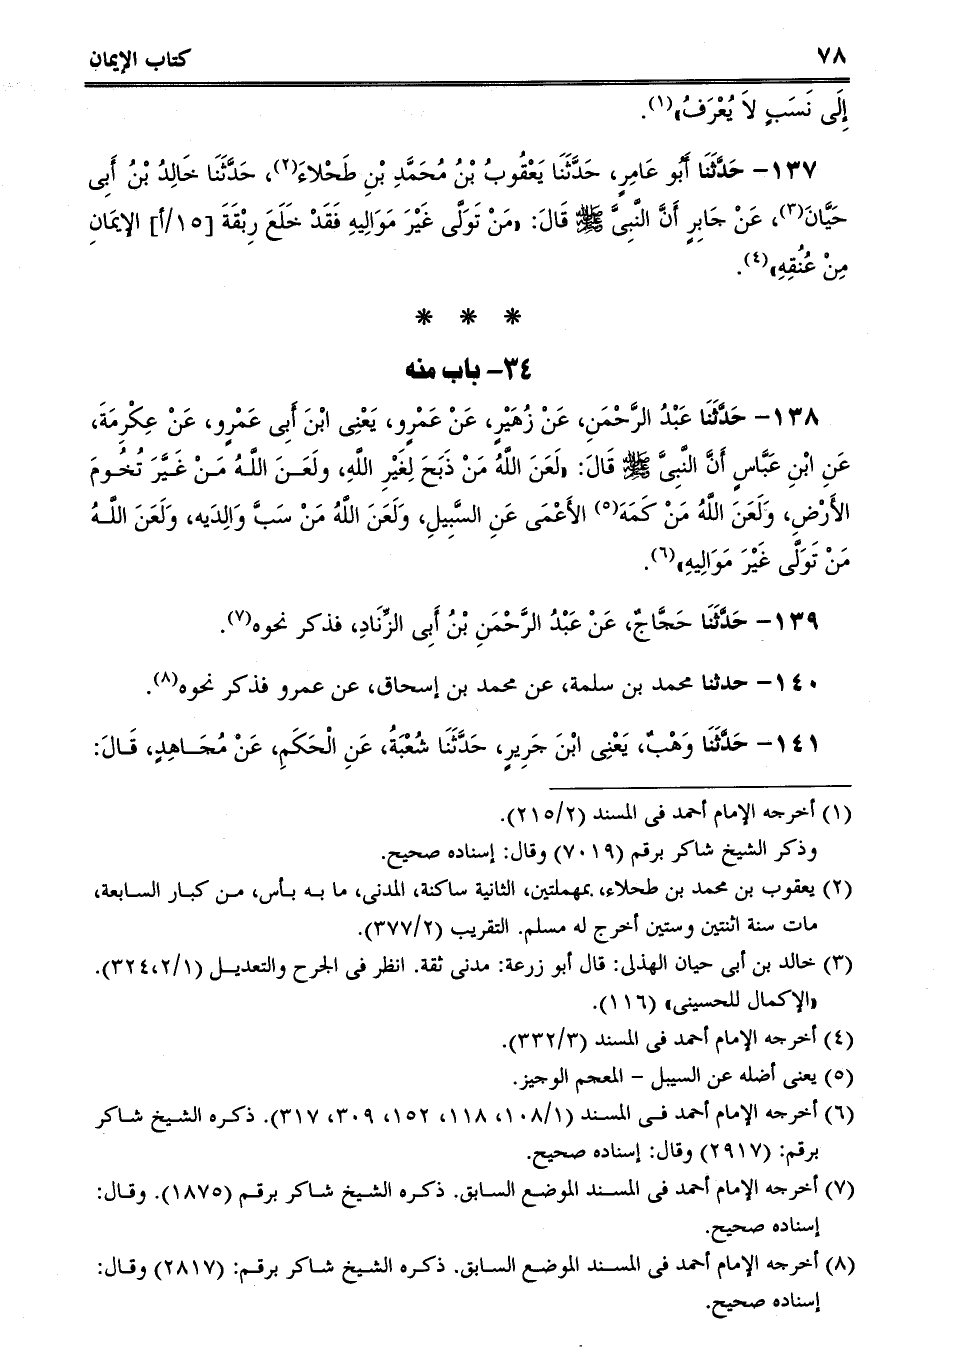 ٧٨ كتاب الإيمان
إِلَى نَسَبٍ لاَ يُعْرَفُ»(١).
١٣٧- حَدَّثَنَا أَبُو عَامِرٍ، حَدَّثَنَا يَعْقُوبُ بْنُ مُحَمَّدِ بْنِ طَحْلاءَ(٢)، حَدَّثَنَا خَالِدُ بْنُ أَبِى
حَيَّانَ(٣)، عَنْ جَابِرٍ أَنَّ النَّبِىَّ ﷺ قَالَ: «مَنْ تَوَلَّى غَيْرَ مَوَالِيهِ فَقَدْ خَلَعَ رِبْقَةَ [١٥/أ] الإِيمَانِ
مِنْ عُنُقِهِ»(٤).
* * *
٣٤- باب منه
١٣٨- حَدَّثَنَا عَبْدُ الرَّحْمَنِ، عَنْ زُهَيْرٍ، عَنْ عَمْرٍو، يَعْنِى ابْنَ أَبِى عَمْرٍو، عَنْ عِكْرِمَةَ،
عَنِ ابْنِ عَبَّاسٍ أَنَّ النَّبِىَّ ﷺ قَالَ: «لَعَنَ اللَّهُ مَنْ ذَبَحَ لِغَيْرِ اللَّهِ، ولَعَنَ اللَّهُ مَنْ غَيَّرَ تُخُومَ
الأَرْضِ، وَلَعَنَ اللَّهُ مَنْ كَمَهَ(٥) الأَعْمَى عَنِ السَّبِيلِ، ولَعَنَ اللَّهُ مَنْ سَبَّ وَالِدَيه، ولَعَنَ اللَّهُ
مَنْ تَوَلَّى غَيْرَ مَوَالِيهِ»(٦).
١٣٩- حَدَّثَنَا حَجَّاجٌ، عَنْ عَبْدُ الرَّحْمَنِ بْنُ أَبِى الزِّنَادِ، فذكر نحوه(٧).
١٤٠- حدثنا محمد بن سلمة، عن محمد بن إسحاق، عن عمرو فذكر نحوه(٨).
١٤١- حَدَّثَنَا وَهْبٌ، يَعْنِى ابْنَ جَرِيرٍ، حَدَّثَنَا شُعْبَةُ، عَنِ الْحَكَمِ، عَنْ مُجَاهِدٍ، قَالَ:
(١) أخرجه الإمام أحمد فى المسند (٢١٥/٢).
وذكر الشيخ شاكر برقم (٧٠١٩) وقال: إسناده صحيح.
(٢) يعقوب بن محمد بن طحلاء، بمهملتين، الثانية ساكنة، المدنى، ما به بأس، من كبار السابعة،
مات سنة اثنتين وستين أخرج له مسلم. التقريب (٣٧٧/٢).
(٣) خالد بن أبى حيان الهذلى: قال أبو زرعة: مدنى ثقة. انظر فى الجرح والتعديل (٣٢٤،٢/١).
«الإكمال للحسينى» (١١٦).
(٤) أخرجه الإمام أحمد فى المسند (٣٣٢/٣).
(٥) يعنى أضله عن السبيل – المعجم الوجيز.
(٦) أخرجه الإمام أحمد فى المسند (١٠٨/١، ١١٨، ١٥٢، ٣٠٩، ٣١٧). ذكره الشيخ شاكر
برقم: (٢٩١٧) وقال: إسناده صحيح.
(٧) أخرجه الإمام أحمد فى المسند الموضع السابق. ذكره الشيخ شاكر برقم (١٨٧٥). وقال:
إسناده صحيح.
(٨) أخرجه الإمام أحمد فى المسند الموضع السابق. ذكره الشيخ شاكر برقم: (٢٨١٧) وقال:
إسناده صحيح.